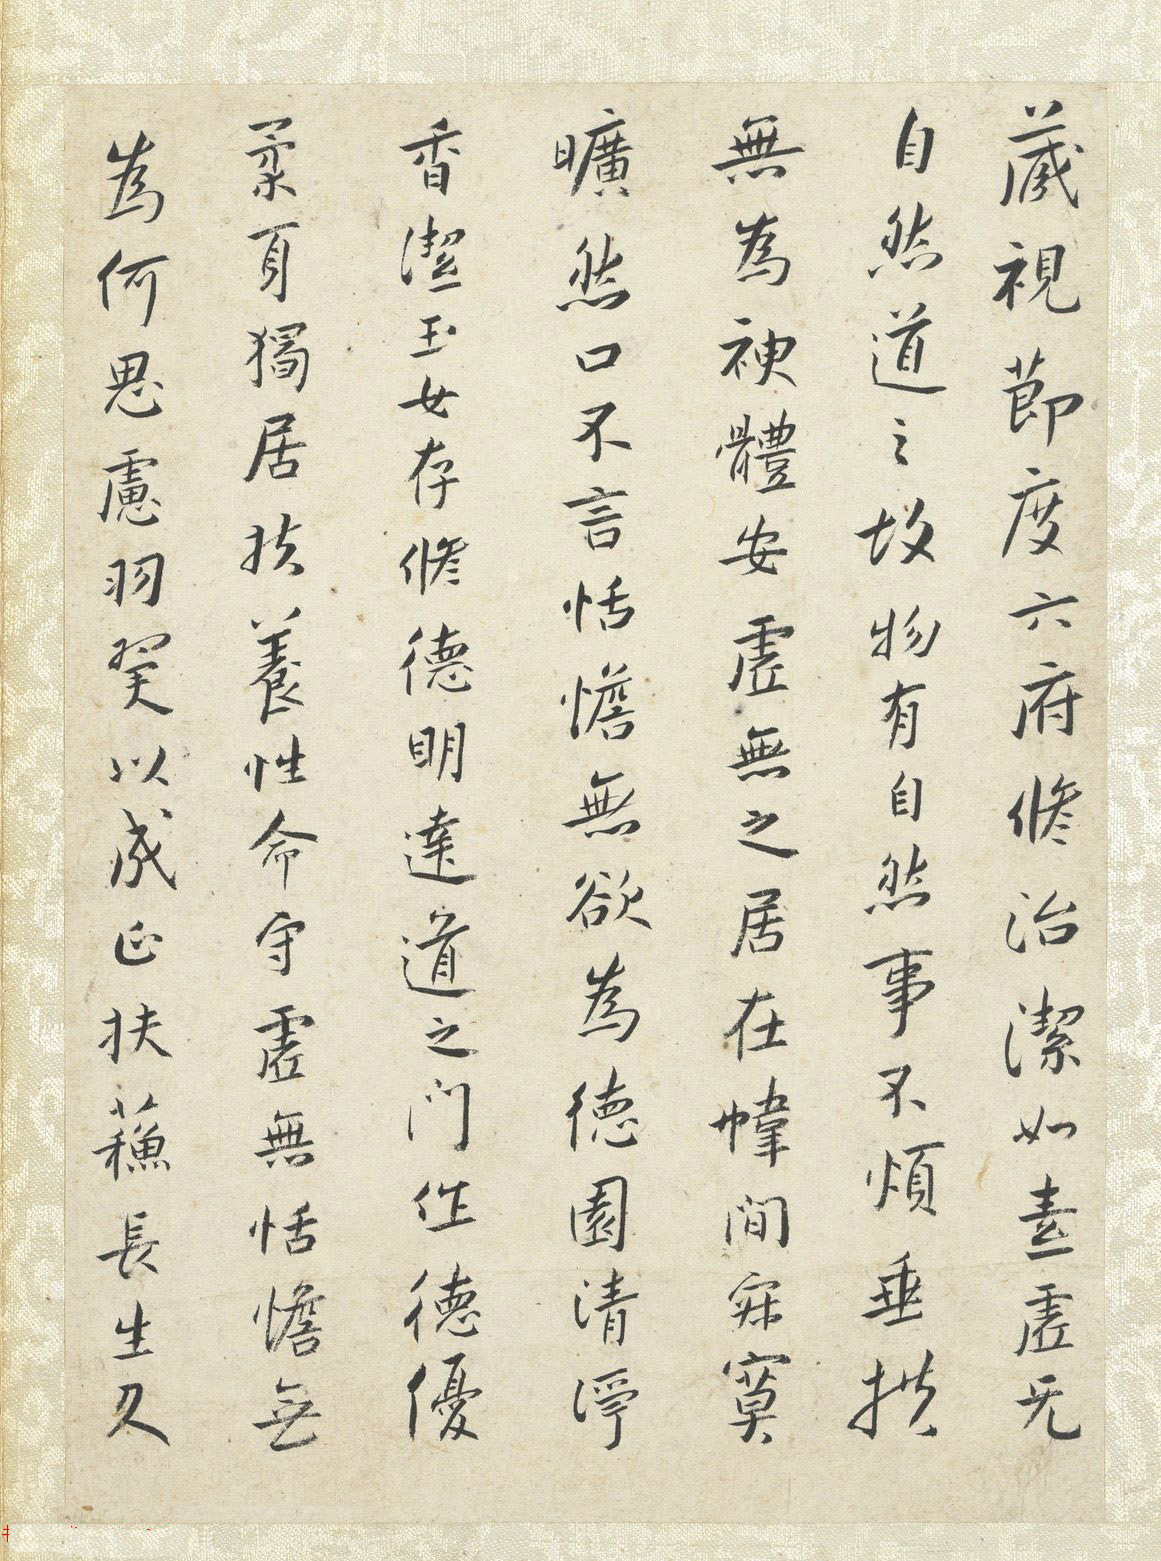 蔵視節度六府修治潔如素虛无
自然道之故物有自然事不煩垂拱
無為神體安虛無之居在幃間寂寞
曠然口不言恬憺無欲為德園清淨
香潔玉女存修德明達道之門作德優
柔身獨居扶養性命守虛無恬憺無
為何思慮羽翼以成正扶蘓長生久